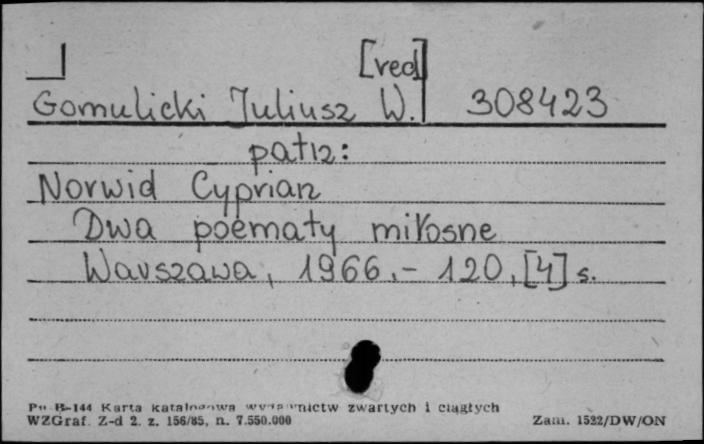 [red]
Gomulicki Juliusz W. 308423
patrz:
Norwid Cyprian
Dwa poematy miłosne
Warszawa, 1966.- 120, [4] s.
Pu B-144 Karta katalogowa wydawnictw zwartych i ciągłych
WZGraf. Z-d 2. z. 156/85, n. 7.550.000 Zam. 1522/DW/ON